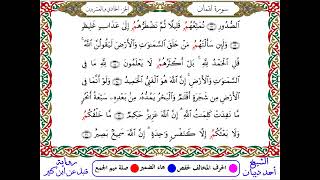 سورة لقمان
الجزء الحادي والعشرون
ٱلصُّدُورِ نُمَتِّعُهُمُۥ قَلِيلًا ثُمَّ نَضۡطَرُّهُمُۥ إِلَىٰ عَذَابٍ غَلِيظٍ
وَلَئِن سَأَلۡتَهُمُۥ مَنۡ خَلَقَ ٱلسَّمَٰوَٰتِ وَٱلۡأَرۡضَ لَيَقُولُنَّ ٱللَّهُ
قُلِ ٱلۡحَمۡدُ لِلَّهِ بَلۡ أَكۡثَرُهُمُۥ لَا يَعۡلَمُونَ لِلَّهِ مَا فِي
ٱلسَّمَٰوَٰتِ وَٱلۡأَرۡضِ إِنَّ ٱللَّهَ هُوَ ٱلۡغَنِيُّ ٱلۡحَمِيدُ وَلَوۡ أَنَّمَا فِي
ٱلۡأَرۡضِ مِن شَجَرَةٍ أَقۡلَٰمٞ وَٱلۡبَحۡرُ يَمُدُّهُۥ مِنۢ بَعۡدِهِۦ سَبۡعَةُ أَبۡحُرٖ
مَّا نَفِدَتۡ كَلِمَٰتُ ٱللَّهِ إِنَّ ٱللَّهَ عَزِيزٌ حَكِيمٞ مَّا خَلۡقُكُمُۥ
وَلَا بَعۡثُكُمُۥ إِلَّا كَنَفۡسٖ وَٰحِدَةٍ إِنَّ ٱللَّهَ سَمِيعُۢ بَصِيرٌ
الشيخ
أحمد ديبان
الحرف المخالف لحفص
هاء الضمير
صلة ميم الجمع
رواية
قنبل عن ابن كثير